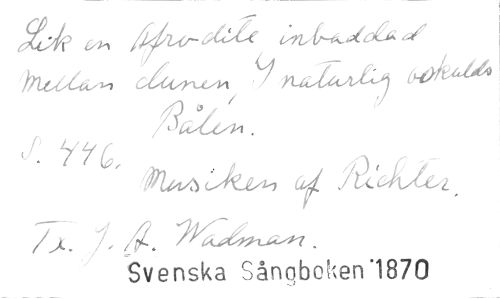 Lik en Afrodite, inbaddad
mellan dunen, I naturlig oskulds
Bålen.
S. 446.
Musiken af Richter.
Tx. J. A. Wadman.
Svenska Sångboken 1870